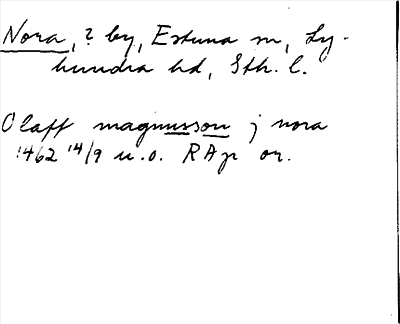 Nora, ? by, Estuna sn, Ly-
hundra hd, Sth. l.
Olaff magnusson j nora
1462 14/9 u.o. RAp or.